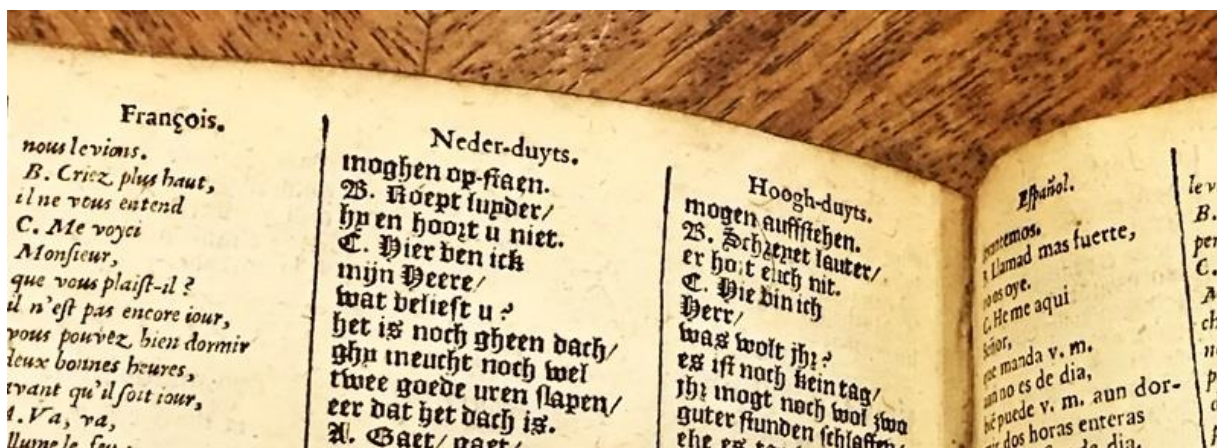 François.
nous levions.
B. Criez plus haut,
il ne vous entend
C. Me voyci
Monsieur,
que vous plaist-il ?
il n'est pas encore iour,
vous pouvez bien dormir
deux bonnes heures,
avant qu'il soit iour,
A. Va, va,
Neder-duyts.
moghen op-staen.
B. Roept luyder/
hy en hoort u niet.
C. Hier ben ick
mijn Heere/
wat belieft u?
het is noch gheen dach/
ghy meucht noch wel
twee goede uren slapen/
eer dat het dach is.
A. Gaet/ gaet/
Hoogh-duyts.
mogen auffstehen.
B. Schreyet lauter/
er hort euch nit.
C. Hie bin ich
Herr/
was wolt jhr?
es ist noch kein tag/
jhr mogt noch wol zwo
guter stunden schlaffen/
ehe es
Español.
B. Llamad mas fuerte,
no os oye.
C. Heme aqui
Señor,
que manda v. m.
aun no es de dia,
puede v. m. aun dor-
dos horas enteras
de dia
lev
B.
per
C.